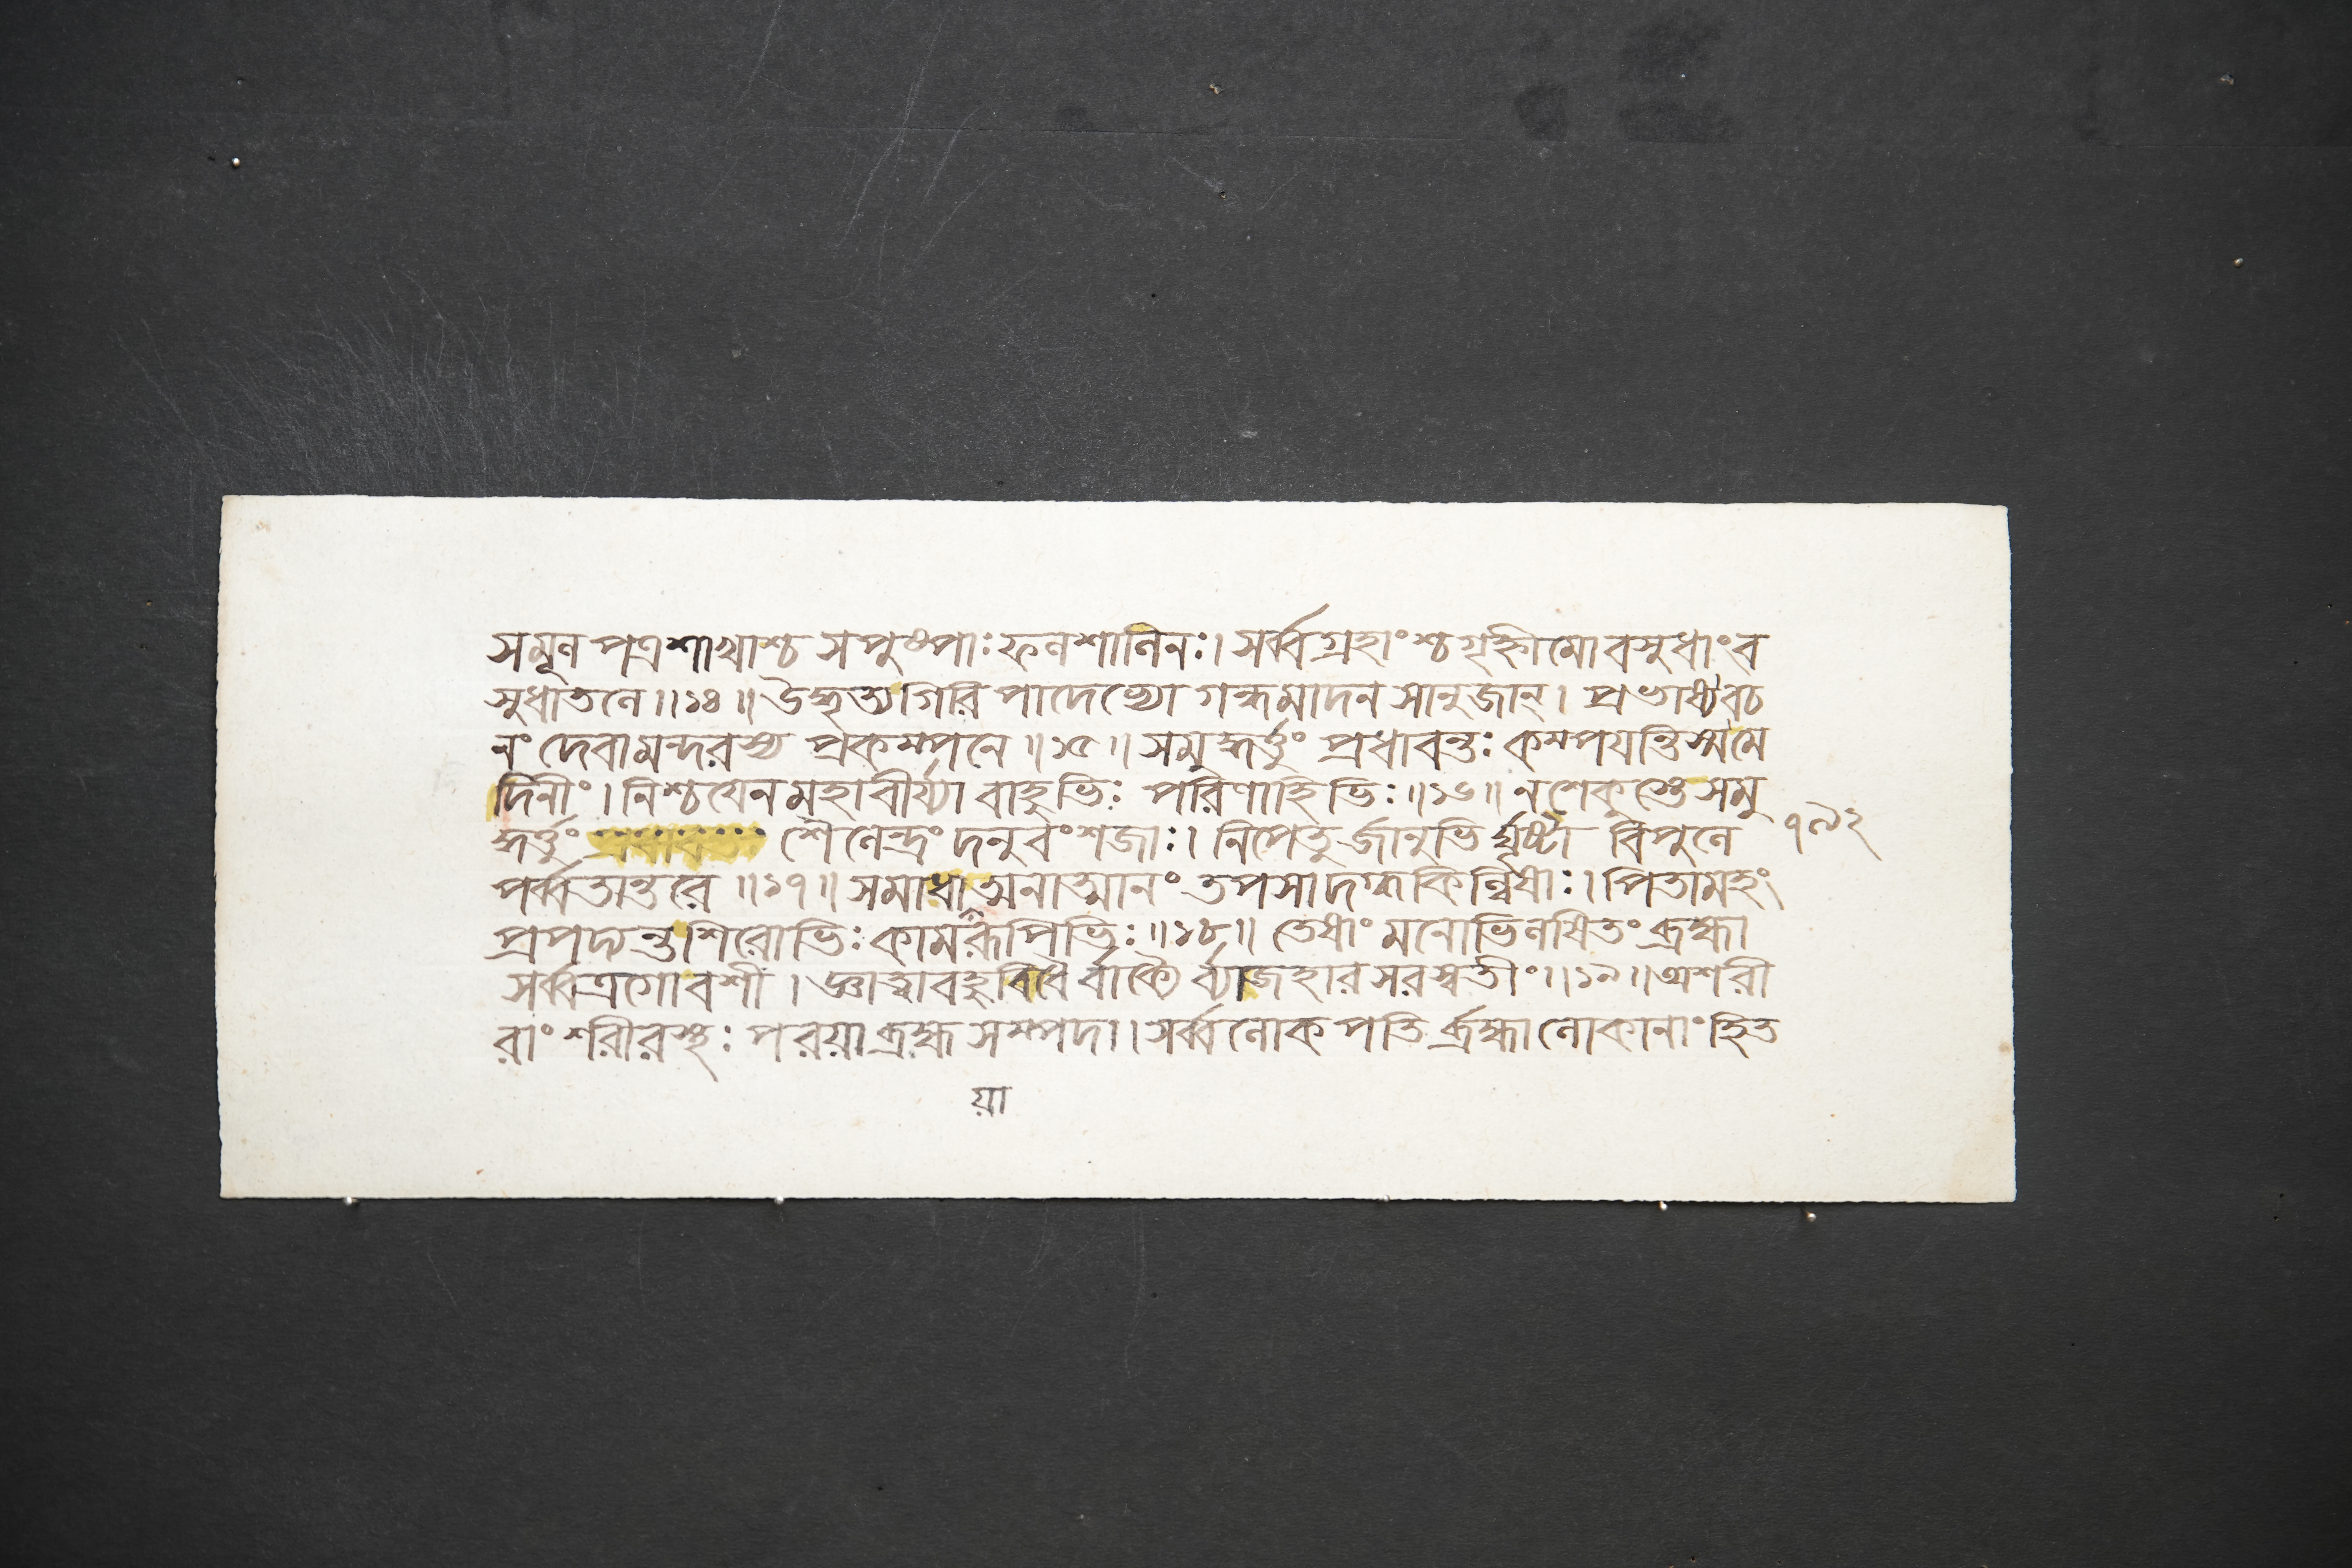 সমূলপত্রশাখাশ্চ সপুষ্পাঃ ফলশালিনঃ। সর্ব্বগ্রহাংশ্চগৃহ্নীমো বসুধাংব
সুধাতলে॥১৪॥ উদ্ধৃত্যগিরি পাদেভ্যো গন্ধমাদন সানুজান্। প্রভাষ্যবচ
নং দেবামন্দরস্য প্রকম্পনে॥১৫॥ সমুদ্ধর্ত্তুং প্রধাবন্তঃ কম্পযন্তিস্মমে
দিনীং। নিশ্চয়েনমহাবীর্য্যা বাহুভিঃ পরিণাহিভিঃ॥১৬॥ নশেকুস্তেসমু
দ্ধর্ত্তুং শৈলেন্দ্রং দনুবংশজাঃ। নিপেতুর্জানুভির্ঘৃষ্টা বিপুলে
পর্ব্বতান্তরে॥১৭॥ সমাধাঅনাত্মানং তপসাদগ্ধকিল্বিষাঃ। পিতামহং
প্রপদ্যন্তশিরোভিঃ কামরূপিভিঃ॥১৮॥ তেষাং মনোভিলষিতং ব্রহ্মা
সর্ব্বত্রগোবশী। জ্ঞাত্বাবহুবিধৈর্বাক্যৈর্ব্যাজহারসরস্বতীং॥১৯॥ অশরী
রাং শরীরস্থঃ পরয়াব্রহ্মসম্পদা। সর্ব্বলোকপতির্ব্রহ্মালোকানাংহিত
য়া
১৯২